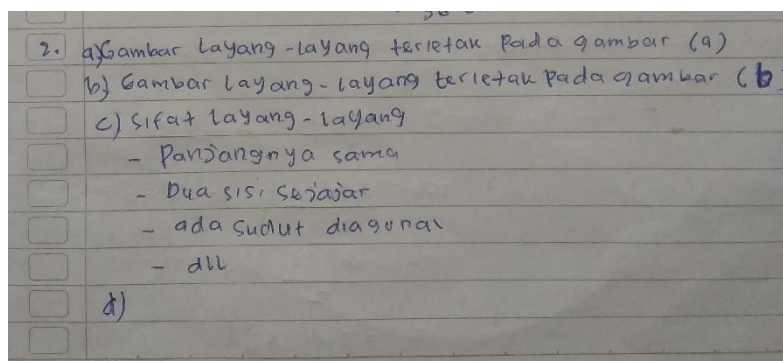 2. a) Gambar Layang-layang terletak Pada gambar (a)
b) Gambar layang-layang terletak Pada gambar (b)
c) Sifat layang-layang
- Panjangnya sama
- Dua sisi sejajar
- ada sudut diagonal
- dll
d)